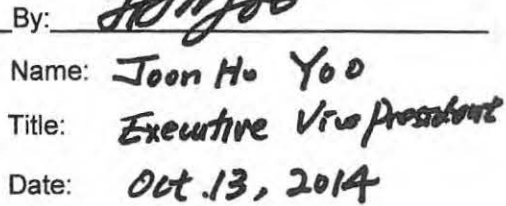 By:
Name: Joon Ho Yoo
Title: Executive Vice President
Date: Oct. 13, 2014